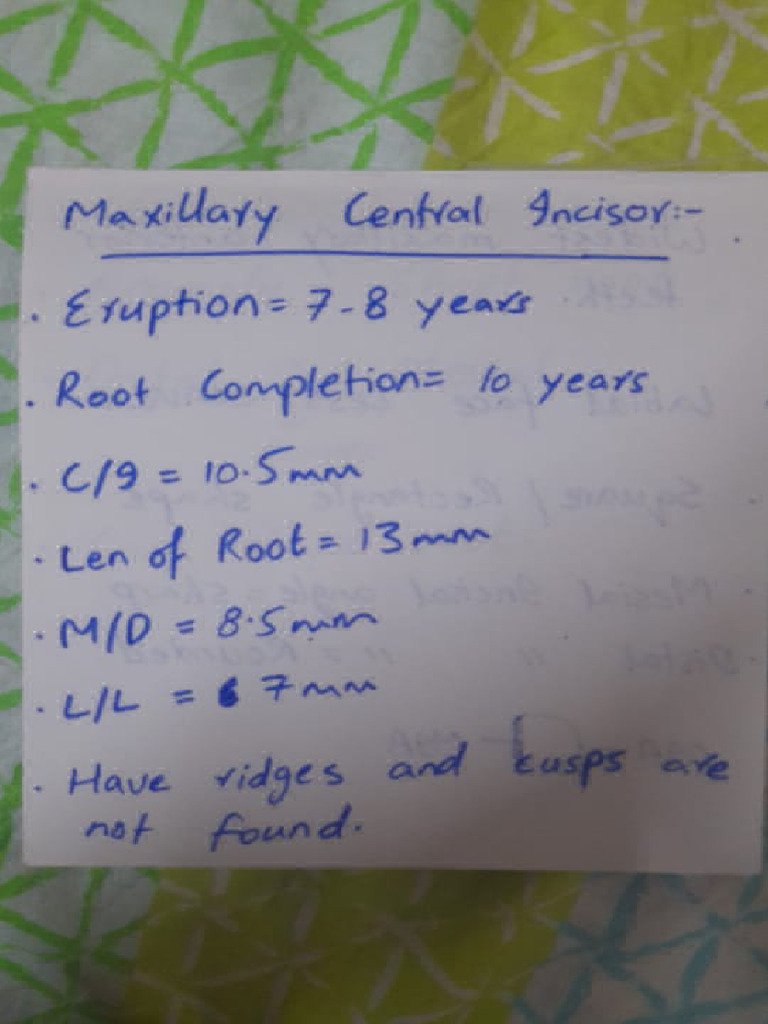 Maxillary Central Incisor:-
. Eruption = 7-8 years
. Root Completion = 10 years
. C/g = 10.5mm
. Len of Root = 13mm
. M/D = 8.5mm
. L/L = 7mm
. Have ridges and cusps are
not found.